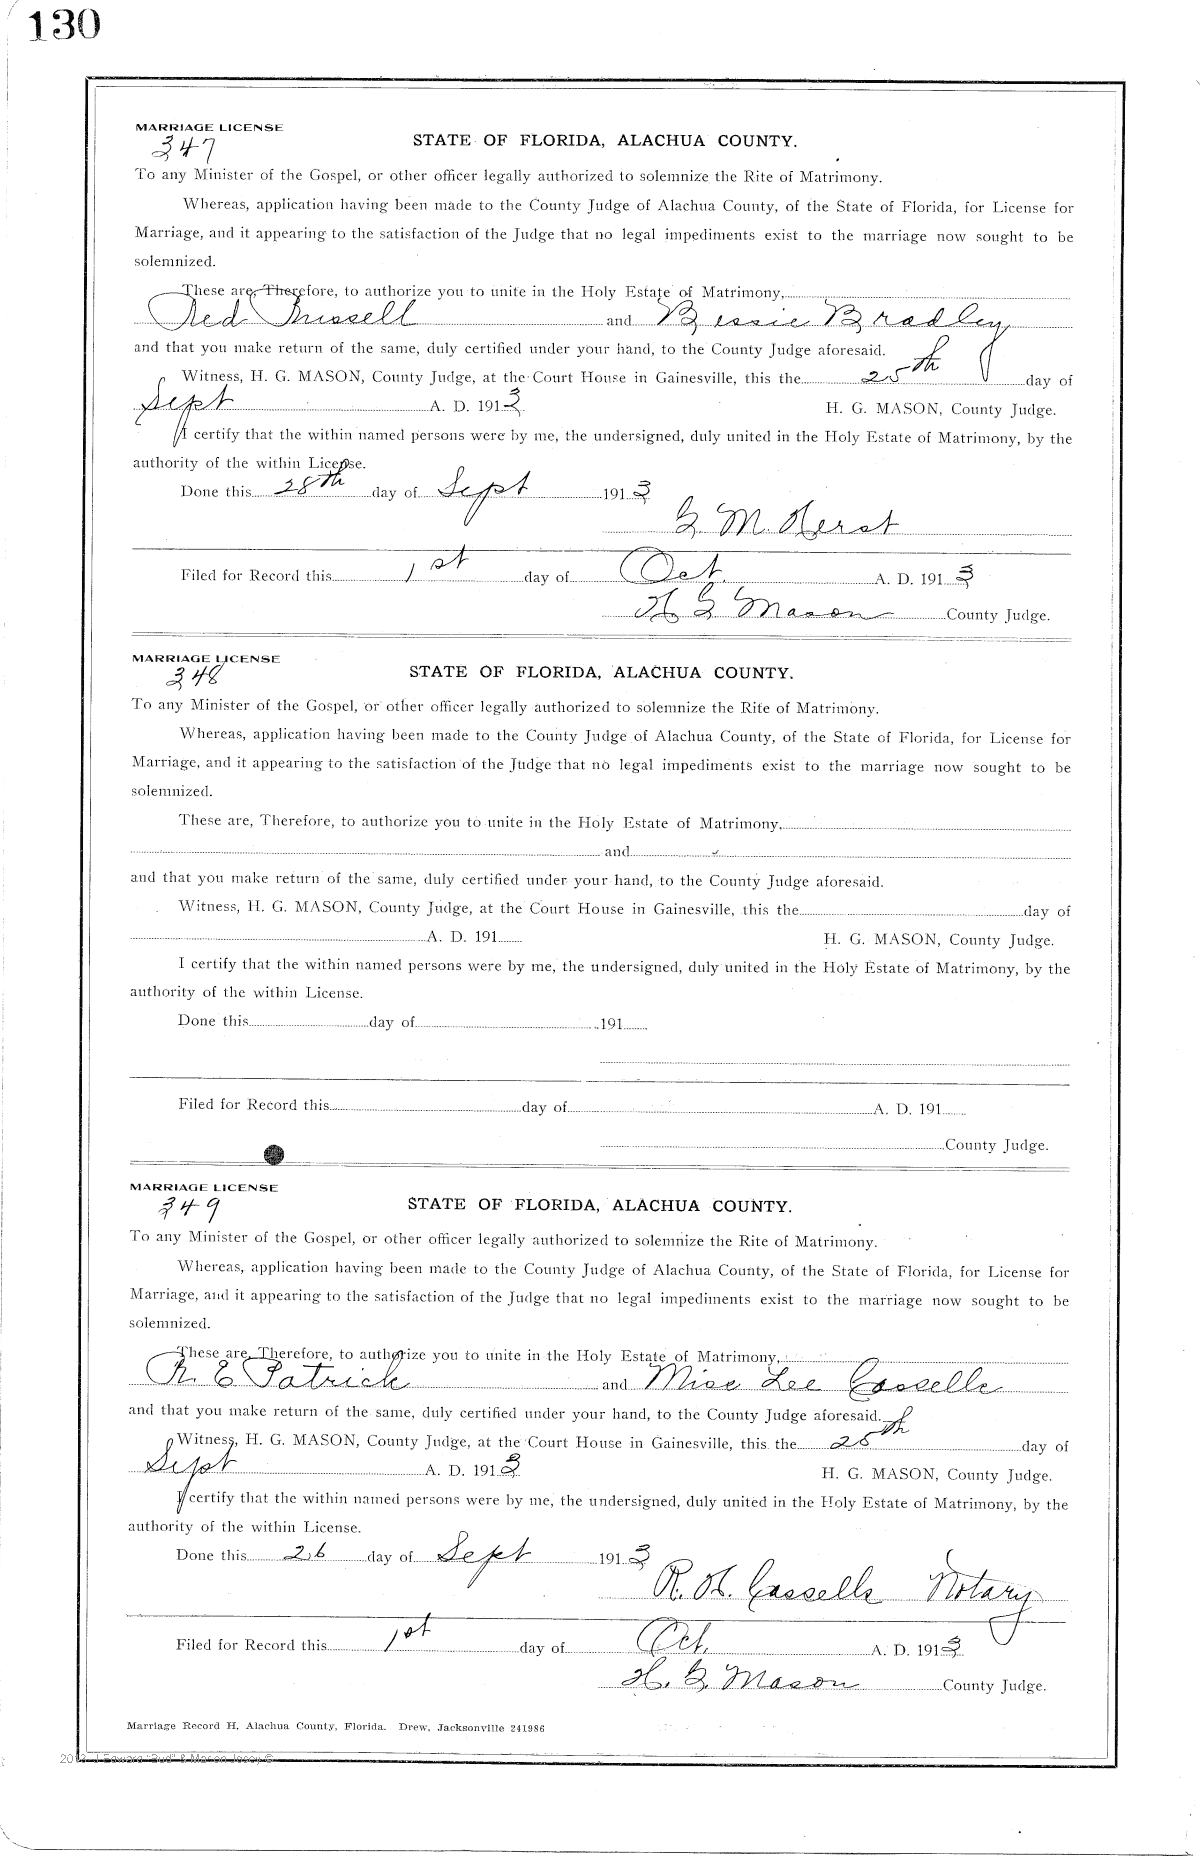 130
MARRIAGE LICENSE
347
STATE OF FLORIDA, ALACHUA COUNTY.
To any Minister of the Gospel, or other officer legally authorized to solemnize the Rite of Matrimony.
Whereas, application having been made to the County Judge of Alachua County, of the State of Florida, for License for
Marriage, and it appearing to the satisfaction of the Judge that no legal impediments exist to the marriage now sought to be
solemnized.
These are, Therefore, to authorize you to unite in the Holy Estate of Matrimony,
and Bessie Bradley
and that you make return of the same, duly certified under your hand, to the County Judge aforesaid.
Witness, H. G. MASON, County Judge, at the Court House in Gainesville, this the 25th day of
Sept A. D. 1913 H. G. MASON, County Judge.
I certify that the within named persons were by me, the undersigned, duly united in the Holy Estate of Matrimony, by the
authority of the within License.
Done this 28th day of Sept 1913
G. M. Herst
Filed for Record this 1st day of Oct. A. D. 1913
H G Mason County Judge.
MARRIAGE LICENSE
348
STATE OF FLORIDA, ALACHUA COUNTY.
To any Minister of the Gospel, or other officer legally authorized to solemnize the Rite of Matrimony.
Whereas, application having been made to the County Judge of Alachua County, of the State of Florida, for License for
Marriage, and it appearing to the satisfaction of the Judge that no legal impediments exist to the marriage now sought to be
solemnized.
These are, Therefore, to authorize you to unite in the Holy Estate of Matrimony,
and
and that you make return of the same, duly certified under your hand, to the County Judge aforesaid.
Witness, H. G. MASON, County Judge, at the Court House in Gainesville, this the day of
A. D. 191 H. G. MASON, County Judge.
I certify that the within named persons were by me, the undersigned, duly united in the Holy Estate of Matrimony, by the
authority of the within License.
Done this day of 191
Filed for Record this day of A. D. 191
County Judge.
MARRIAGE LICENSE
349
STATE OF FLORIDA, ALACHUA COUNTY.
To any Minister of the Gospel, or other officer legally authorized to solemnize the Rite of Matrimony.
Whereas, application having been made to the County Judge of Alachua County, of the State of Florida, for License for
Marriage, and it appearing to the satisfaction of the Judge that no legal impediments exist to the marriage now sought to be
solemnized.
These are, Therefore, to authorize you to unite in the Holy Estate of Matrimony,
R. E Patrick and Miss Lee Cassells
and that you make return of the same, duly certified under your hand, to the County Judge aforesaid.
Witness, H. G. MASON, County Judge, at the Court House in Gainesville, this the 25th day of
Sept A. D. 1913 H. G. MASON, County Judge.
I certify that the within named persons were by me, the undersigned, duly united in the Holy Estate of Matrimony, by the
authority of the within License.
Done this 26 day of Sept 1913
R. H. Cassells Notary
Filed for Record this 1st day of Oct. A. D. 1913
H. G. Mason County Judge.
Marriage Record H, Alachua County, Florida. Drew, Jacksonville 241986